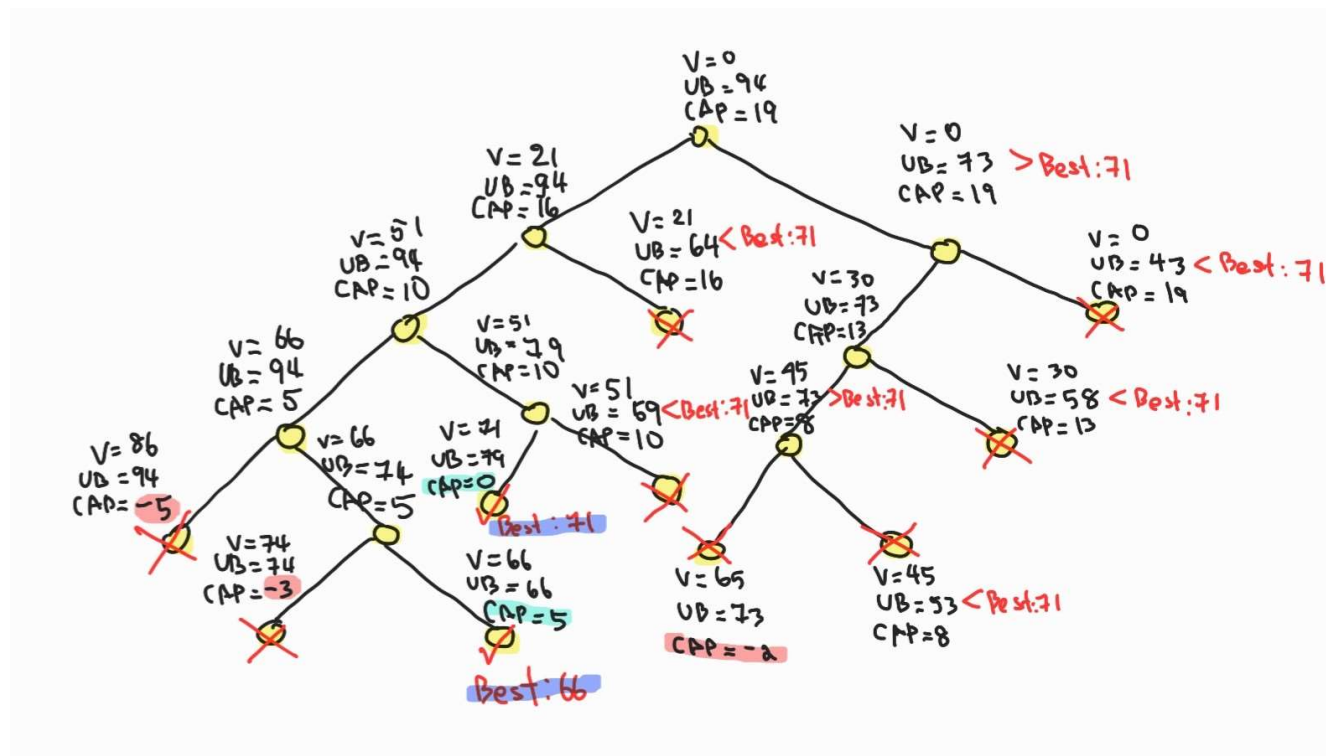 V=0
UB=94
CAP=19
V=0
UB=73 >Best:71
CAP=19
V=21
UB=94
CAP=16
V=21
UB=64 <Best:71
CAP=16
V=0
UB=43 <Best:71
CAP=19
V=51
UB=94
CAP=10
V=30
UB=73
CAP=13
V=51
UB=79
CAP=10
V=66
UB=94
CAP=5
V=51
UB=59 <Best:71
CAP=10
V=45
UB=73 >Best:71
CAP=8
V=30
UB=58 <Best:71
CAP=13
V=86
UB=94
CAP=-5
V=66
UB=74
CAP=5
V=71
UB=79
CAP=0
Best:71
V=74
UB=74
CAP=-3
V=66
UB=66
CAP=5
Best:66
V=65
UB=73
CAP=-2
V=45
UB=53 <Best:71
CAP=8